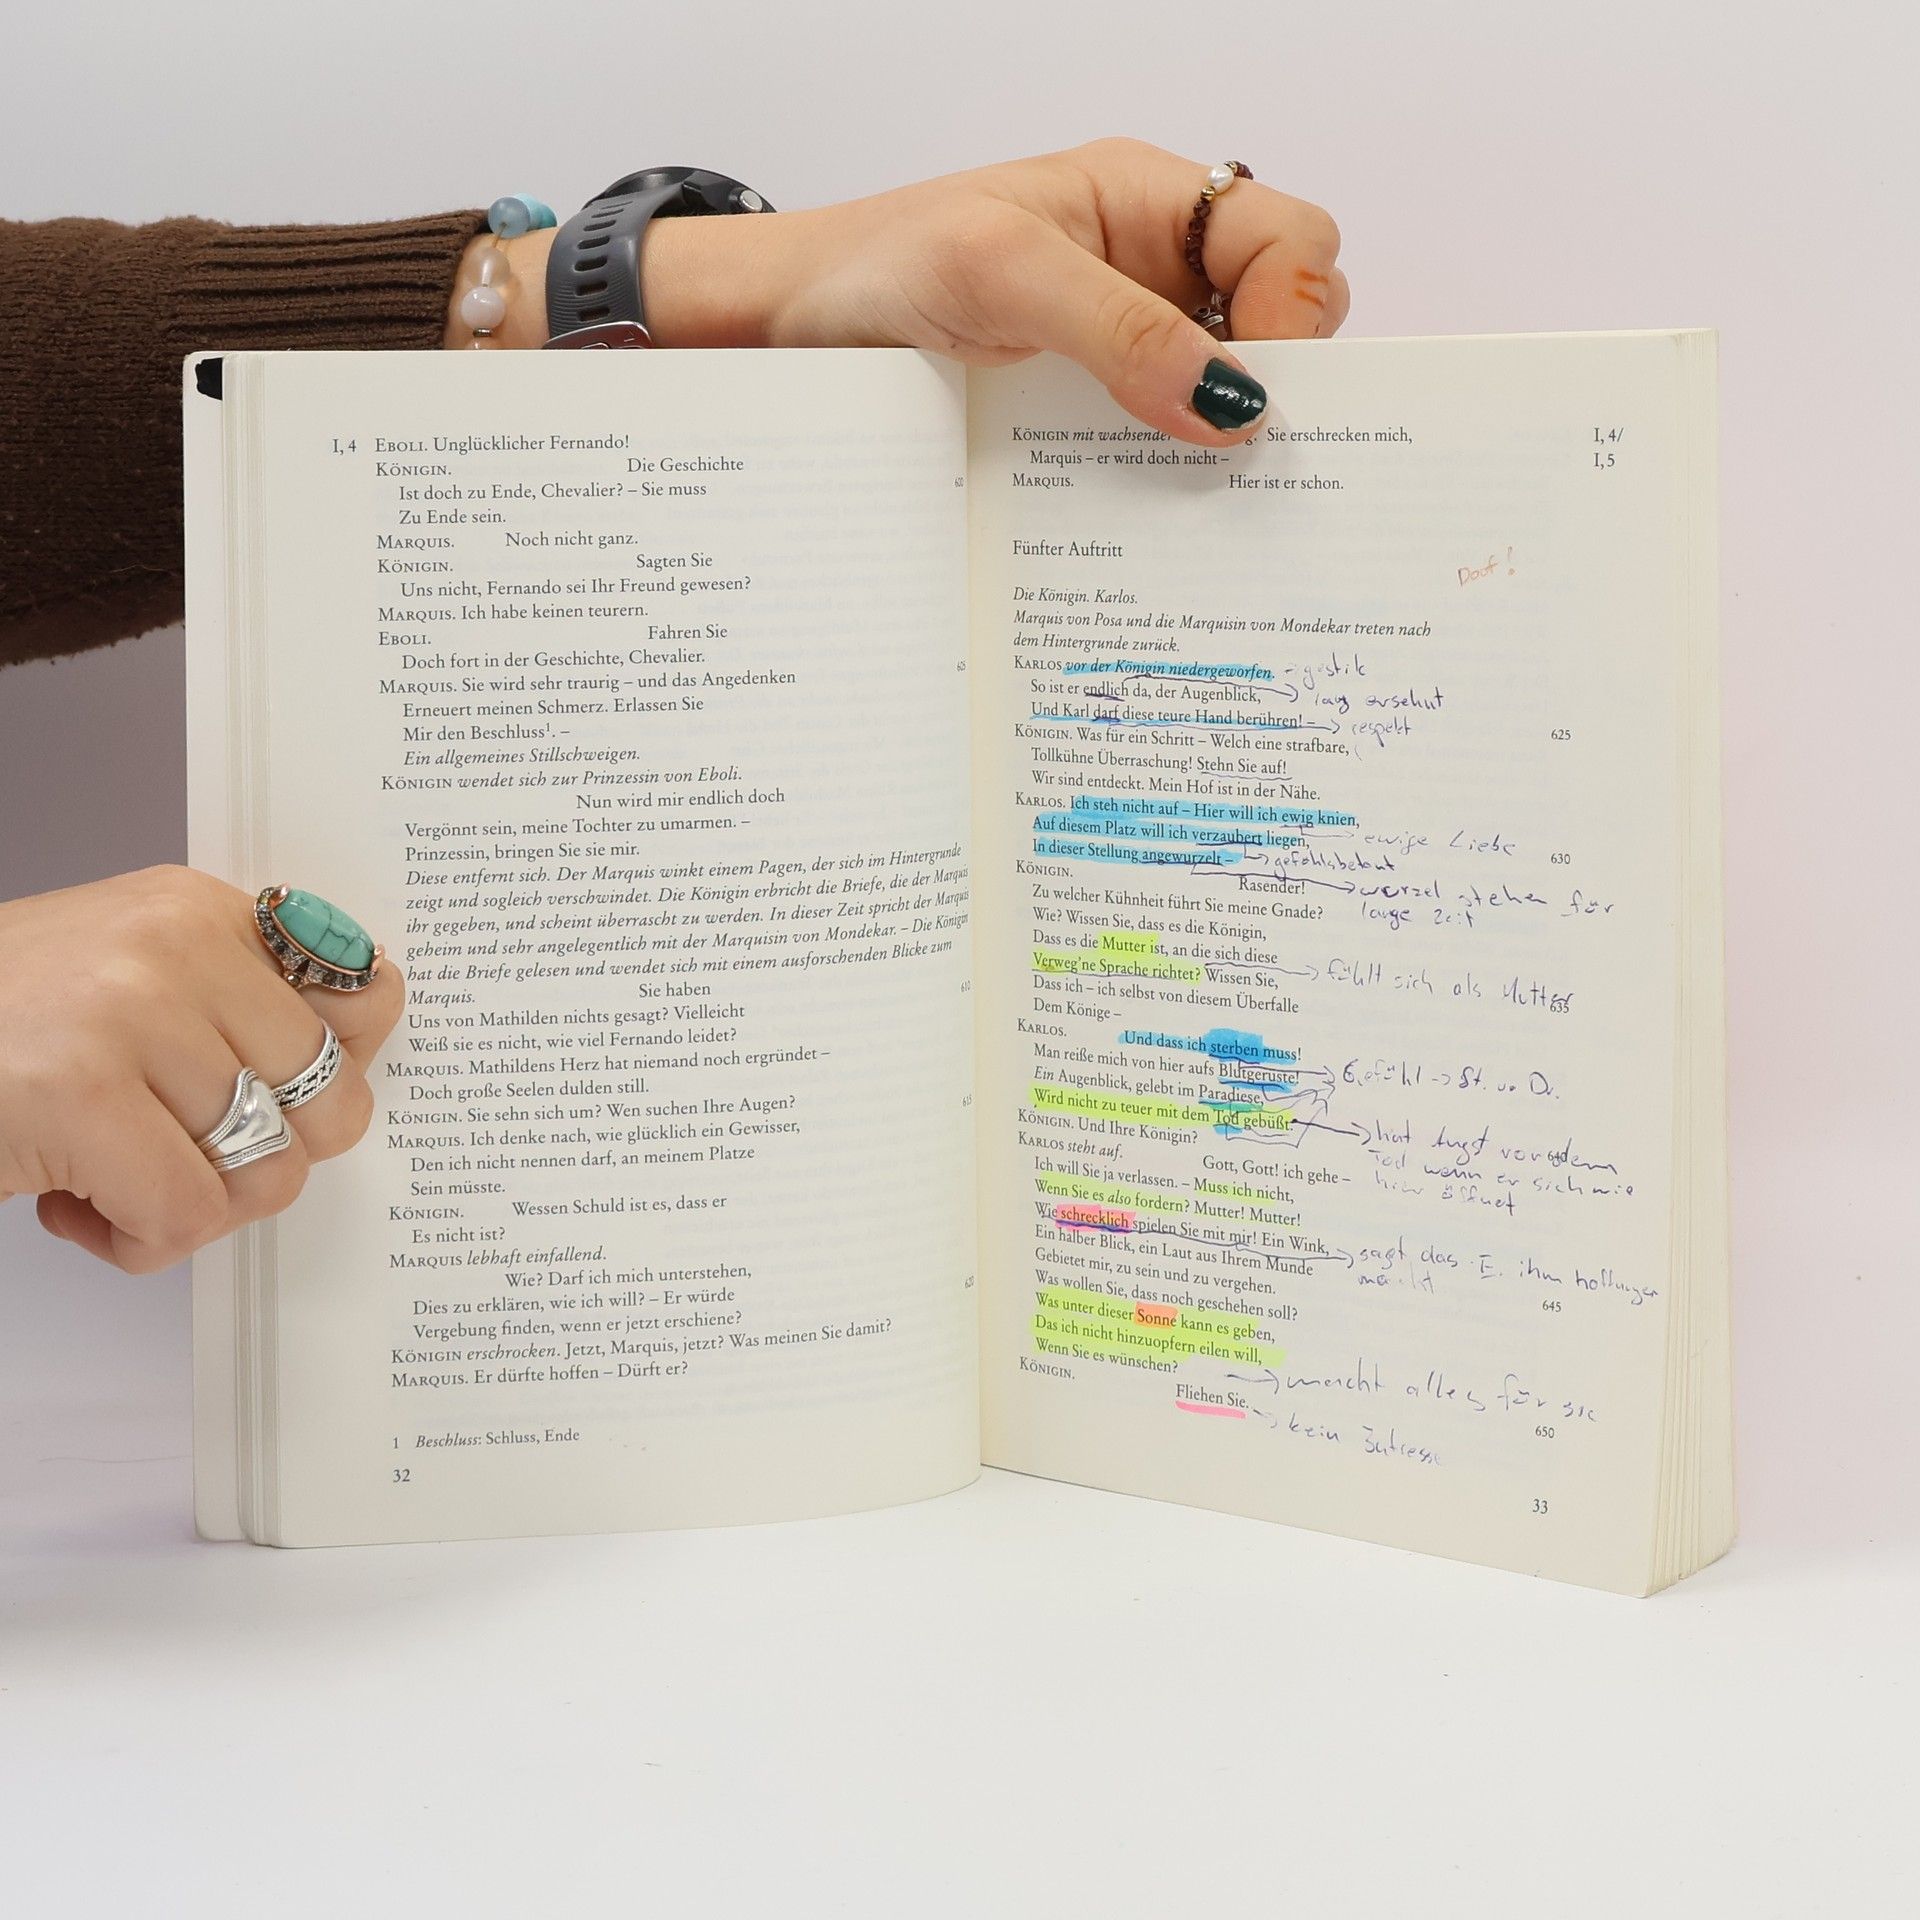 I, 4 EBOLI. Unglücklicher Fernando!
KÖNIGIN. Die Geschichte
Ist doch zu Ende, Chevalier? – Sie muss 600
Zu Ende sein.
MARQUIS. Noch nicht ganz.
KÖNIGIN. Sagten Sie
Uns nicht, Fernando sei Ihr Freund gewesen?
MARQUIS. Ich habe keinen teurern.
EBOLI. Fahren Sie
Doch fort in der Geschichte, Chevalier. 605
MARQUIS. Sie wird sehr traurig – und das Angedenken
Erneuert meinen Schmerz. Erlassen Sie
Mir den Beschluss¹. –
Ein allgemeines Stillschweigen.
KÖNIGIN wendet sich zur Prinzessin von Eboli.
Nun wird mir endlich doch
Vergönnt sein, meine Tochter zu umarmen. –
Prinzessin, bringen Sie sie mir.
Diese entfernt sich. Der Marquis winkt einem Pagen, der sich im Hintergrunde
zeigt und sogleich verschwindet. Die Königin erbricht die Briefe, die der Marquis
ihr gegeben, und scheint überrascht zu werden. In dieser Zeit spricht der Marquis
geheim und sehr angelegentlich mit der Marquisin von Mondekar. – Die Königin
hat die Briefe gelesen und wendet sich mit einem ausforschenden Blicke zum
Marquis. Sie haben 610
Uns von Mathilden nichts gesagt? Vielleicht
Weiß sie es nicht, wie viel Fernando leidet?
MARQUIS. Mathildens Herz hat niemand noch ergründet –
Doch große Seelen dulden still.
KÖNIGIN. Sie sehn sich um? Wen suchen Ihre Augen? 615
MARQUIS. Ich denke nach, wie glücklich ein Gewisser,
Den ich nicht nennen darf, an meinem Platze
Sein müsste.
KÖNIGIN. Wessen Schuld ist es, dass er
Es nicht ist?
MARQUIS lebhaft einfallend.
Wie? Darf ich mich unterstehen,
Dies zu erklären, wie ich will? – Er würde 620
Vergebung finden, wenn er jetzt erschiene?
KÖNIGIN erschrocken. Jetzt, Marquis, jetzt? Was meinen Sie damit?
MARQUIS. Er dürfte hoffen – Dürft er?
1 Beschluss: Schluss, Ende
32
KÖNIGIN mit wachsender Sie erschrecken mich, I, 4/
Marquis – er wird doch nicht – I, 5
MARQUIS. Hier ist er schon.
Fünfter Auftritt
Doof!
Die Königin. Karlos.
Marquis von Posa und die Marquisin von Mondekar treten nach
dem Hintergrunde zurück.
KARLOS vor der Königin niedergeworfen. gestik
So ist er endlich da, der Augenblick, lang ersehnt
Und Karl darf diese teure Hand berühren! – respekt 625
KÖNIGIN. Was für ein Schritt – Welch eine strafbare,
Tollkühne Überraschung! Stehn Sie auf!
Wir sind entdeckt. Mein Hof ist in der Nähe.
KARLOS. Ich steh nicht auf – Hier will ich ewig knien,
Auf diesem Platz will ich verzaubert liegen, ewige Liebe 630
In dieser Stellung angewurzelt – gefühlsbetont
KÖNIGIN. Rasender! wurzel stehen für
Zu welcher Kühnheit führt Sie meine Gnade? lange Zeit
Wie? Wissen Sie, dass es die Königin,
Dass es die Mutter ist, an die sich diese
Verweg'ne Sprache richtet? Wissen Sie, fühlt sich als Mutter 635
Dass ich – ich selbst von diesem Überfalle
Dem Könige –
KARLOS. Und dass ich sterben muss!
Man reiße mich von hier aufs Blutgerüste! Gefühl -> St. u. Dr.
Ein Augenblick, gelebt im Paradiese,
Wird nicht zu teuer mit dem Tod gebüßt. hat Angst vor dem 640
KÖNIGIN. Und Ihre Königin? Tod wenn er sich wie
KARLOS steht auf. Gott, Gott! ich gehe – hier öffnet
Ich will Sie ja verlassen. – Muss ich nicht,
Wenn Sie es also fordern? Mutter! Mutter!
Wie schrecklich spielen Sie mit mir! Ein Wink, sagt das E. ihm hoffnungen
Ein halber Blick, ein Laut aus Ihrem Munde macht
Gebietet mir, zu sein und zu vergehen. 645
Was wollen Sie, dass noch geschehen soll?
Was unter dieser Sonne kann es geben,
Das ich nicht hinzuopfern eilen will,
Wenn Sie es wünschen? macht alles für sie
KÖNIGIN. Fliehen Sie. kein Intresse 650
33